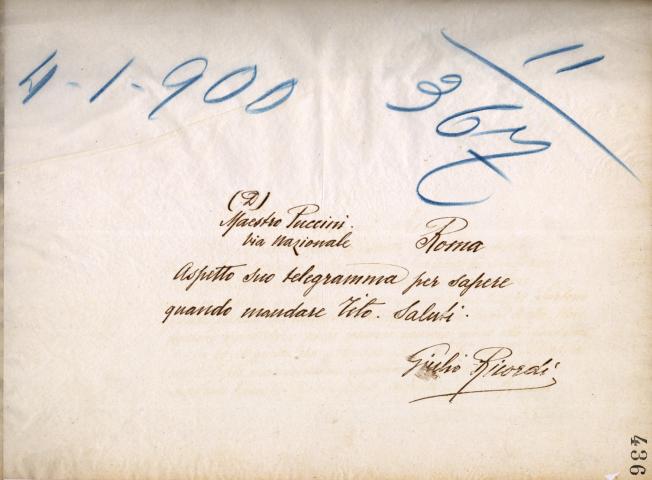 4-1-900
11
367
(2)
Maestro Puccini.
Via Nazionale Roma
Aspetto suo telegramma per sapere
quando mandare Tito. Saluti.
Giulio Ricordi
436